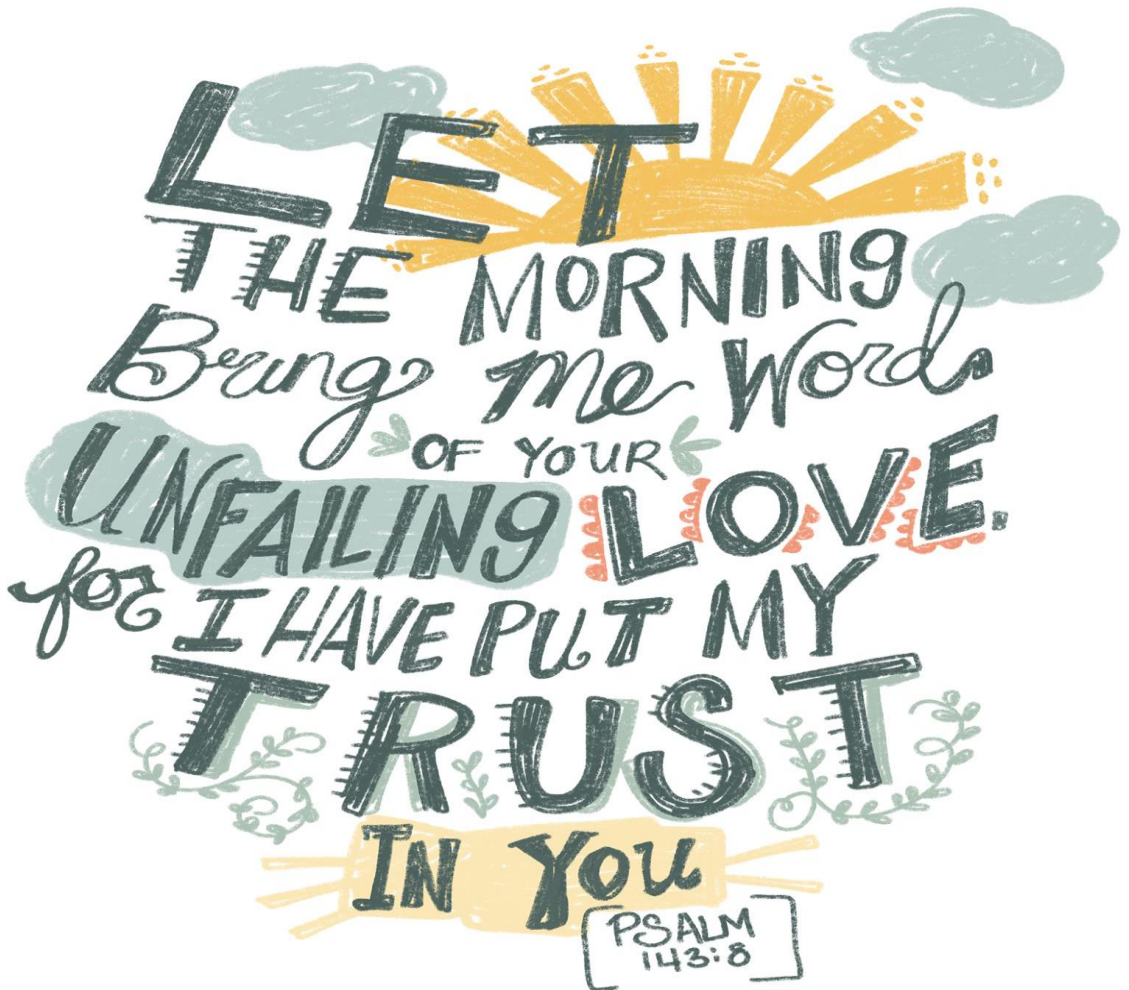 LET
THE MORNING
Bring me Word
OF YOUR
UNFAILING LOVE.
for I HAVE PUT MY
TRUST
IN YOU
PSALM
143:8